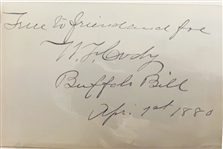 True to friend and foe
W. F. Cody
Buffalo Bill
Apr. 1st 1880